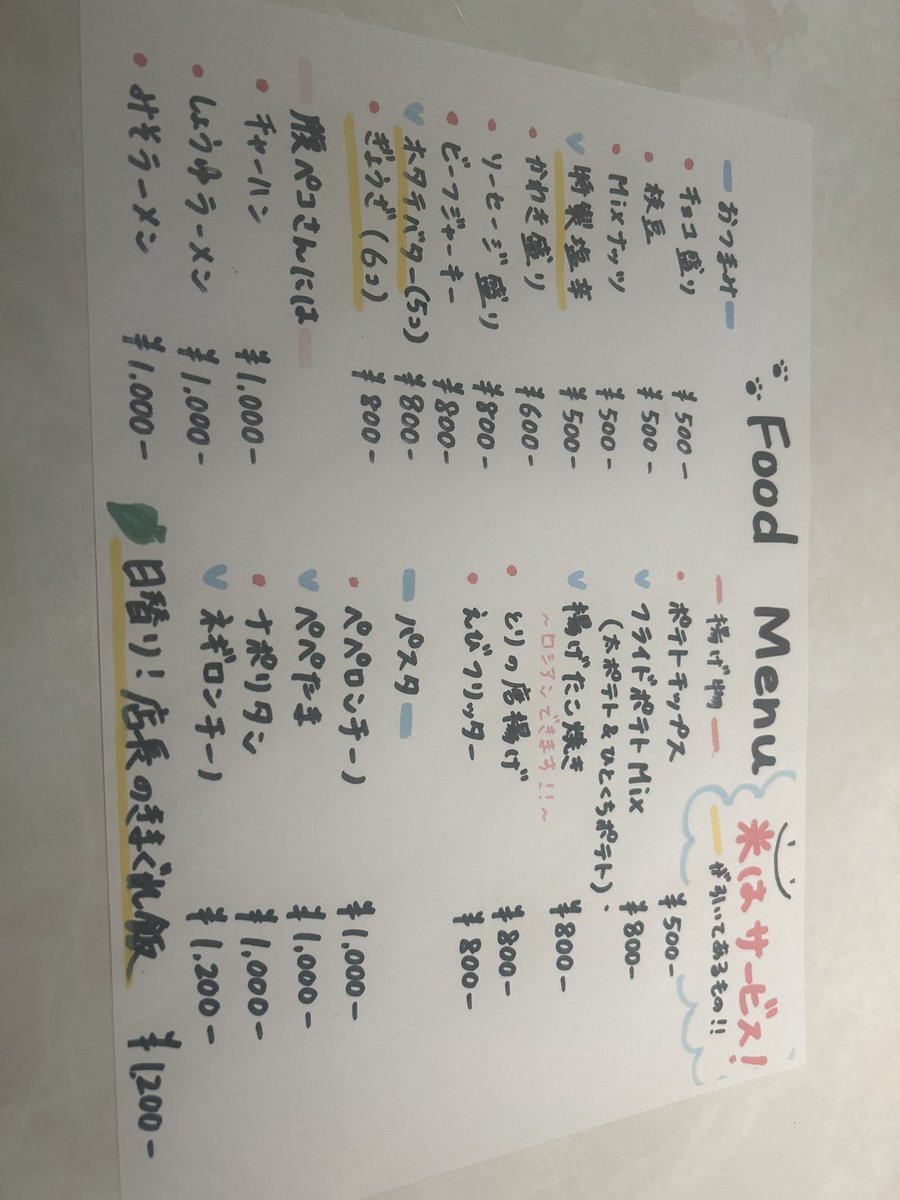 Food Menu
米はサービス!
ー が引いてあるもの!!
ー おつまみ ー
• チョコ盛り ¥500-
• 枝豆 ¥500-
• Mixナッツ ¥500-
♥ 燻製塩辛 ¥500-
• かわき盛り ¥600-
• ソーセージ盛り ¥800-
• ビーフジャーキー ¥800-
♥ ホタテバター(5コ) ¥800-
• ぎょうざ(6コ) ¥800-
ー 腹ペコさんには ー
• チャーハン ¥1.000-
• しょうゆラーメン ¥1,000-
• みそラーメン ¥1.000-
ー 揚げ物 ー
• ポテトチップス ¥500-
♥ フライドポテトMix ¥800-
(太ポテト&ひとくちポテト)
♥ 揚げたこ焼き ¥800-
~ロシアンできます!!~
• とりの唐揚げ ¥800-
• えびフリッター ¥800-
ー パスタ ー
• ペペロンチーノ ¥1,000-
♥ ペペたま ¥1,000-
• ナポリタン ¥1,000-
♥ ネギロンチーノ ¥1,200-
日替り! 店長のきまぐれ飯 ¥1,200-